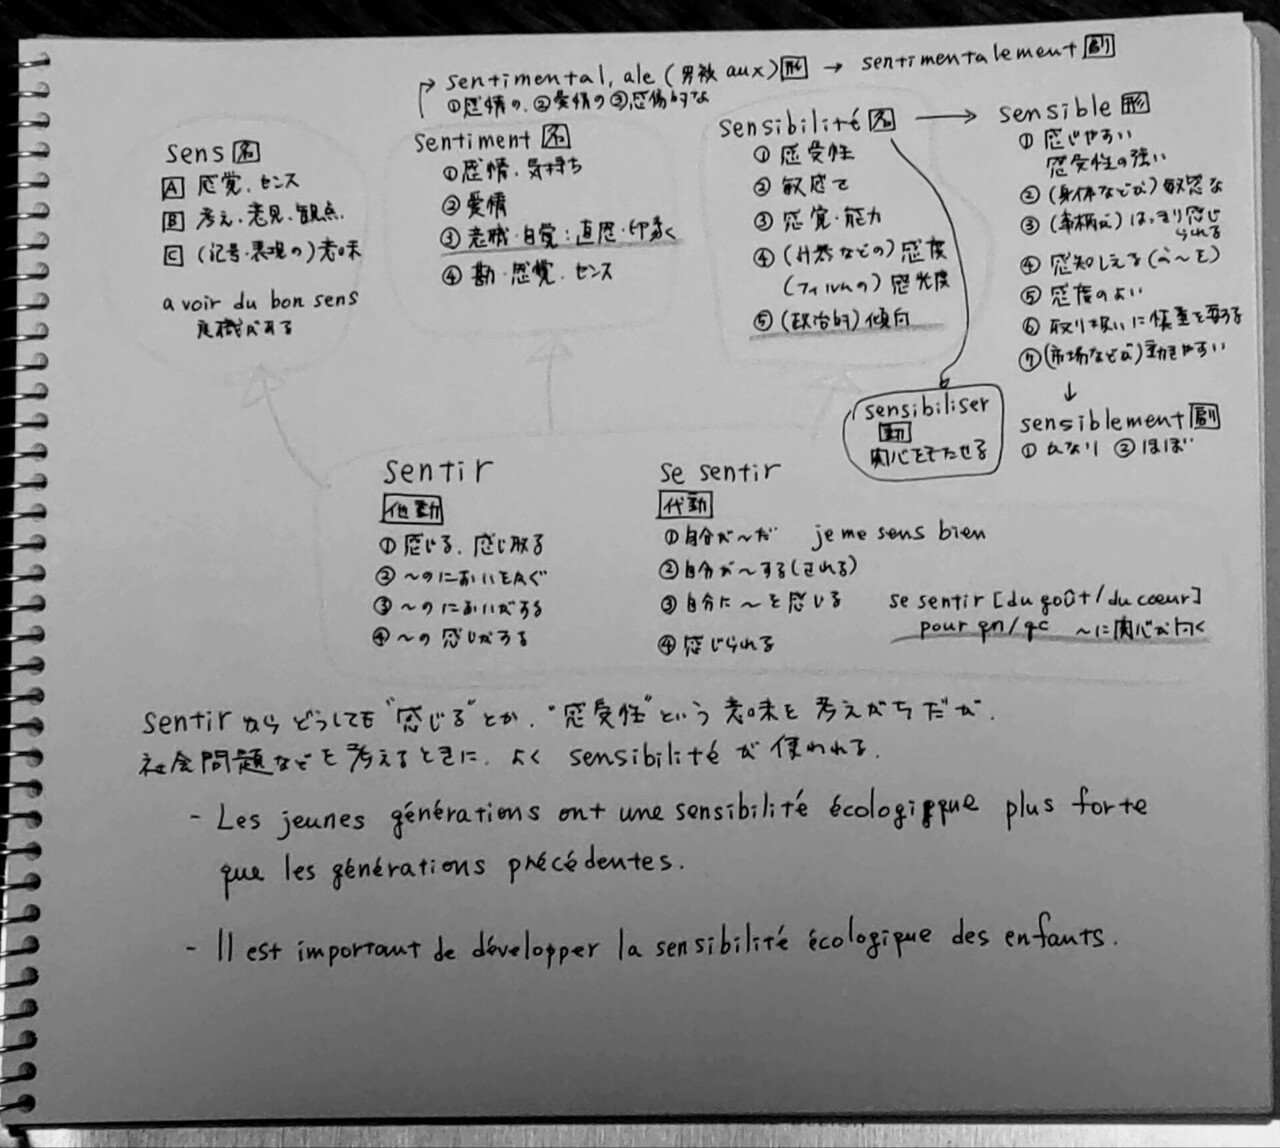 sentimental, ale (男複 aux) 形 → sentimentalement 副
①感情の、②愛情の ③感傷的な
sens 名
A 感覚、センス
B 考え・意見・観点、
C (記号・表現の)意味
avoir du bon sens
良識がある
sentiment 名
①感情、気持ち
②愛情
③意識・自覚:直感・印象
④勘・感覚、センス
sensibilité 名
①感受性
②敏感さ
③感覚・能力
④(計器などの)感度
(フィルムの)感光度
⑤(政治的)傾向
sensible 形
①感じやすい
感受性の強い
②(身体などが)敏感な
③(事柄が)はっきり感じ
られる
④感知しえる(が〜を)
⑤感度のよい
⑥取り扱いに慎重を要する
⑦(市場などが)動きやすい
↓
sensiblement 副
①かなり ②ほぼ
sensibiliser
動
関心をもたせる
sentir
他動
①感じる、感じ取る
②〜のにおいをかぐ
③〜のにおいがする
④〜の感じがする
se sentir
代動
①自分が〜だ je me sens bien
②自分が〜する(される)
③自分に〜を感じる
④感じられる
se sentir [du goût/du cœur]
pour qn/qc 〜に関心が向く
sentirからどうしても"感じる"とか、"感受性"という意味を考えがちだが、
社会問題などを考えるときに、よく sensibilité が使われる。
- Les jeunes générations ont une sensibilité écologique plus forte
que les générations précédentes.
- Il est important de développer la sensibilité écologique des enfants.